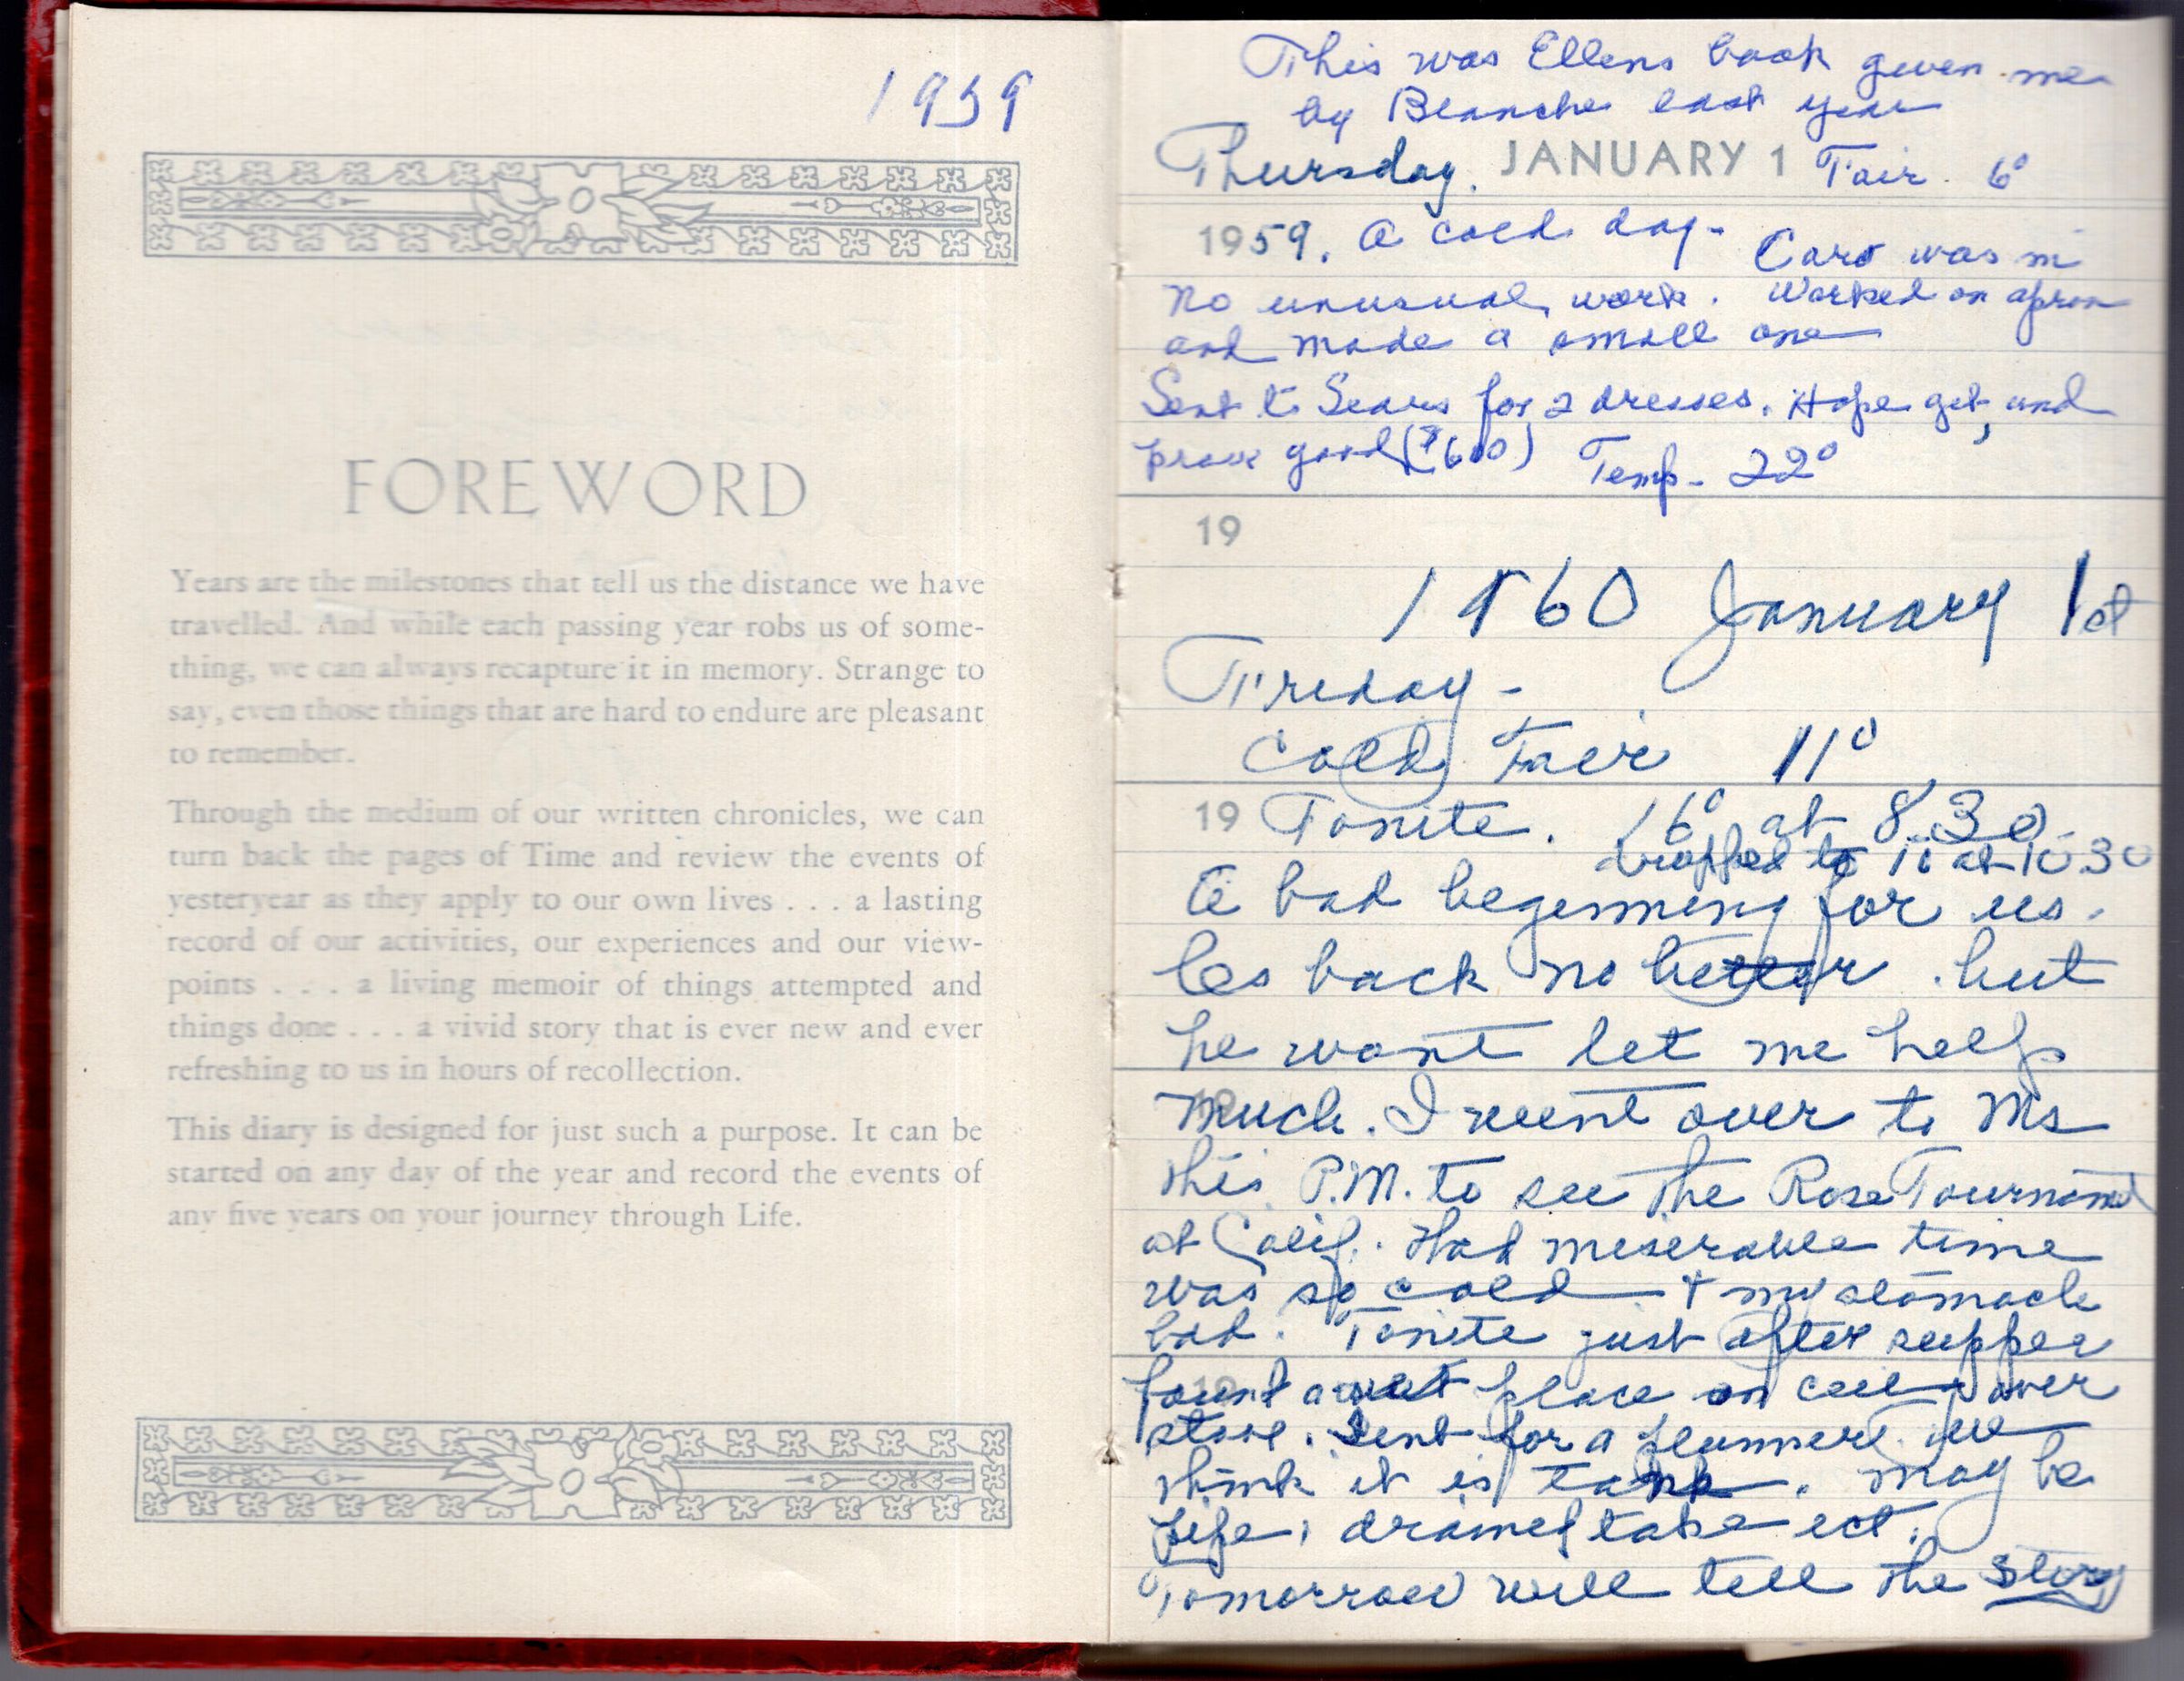 1959
FOREWORD
Years are the milestones that tell us the distance we have
travelled. And while each passing year robs us of some-
thing, we can always recapture it in memory. Strange to
say, even those things that are hard to endure are pleasant
to remember.
Through the medium of our written chronicles, we can
turn back the pages of Time and review the events of
yesteryear as they apply to our own lives . . . a lasting
record of our activities, our experiences and our view-
points . . . a living memoir of things attempted and
things done . . . a vivid story that is ever new and ever
refreshing to us in hours of recollection.
This diary is designed for just such a purpose. It can be
started on any day of the year and record the events of
any five years on your journey through Life.
This was Ellens book given me
by Blanche last year
Thursday. JANUARY 1 Fair. 6°
1959. A cold day- Caro was in
No unusual work. Worked on apron
and made a small one
Sent to Sears for 2 dresses. Hope get, and
prove good Temp- 22°
19
1960 January 1st
Friday -
Cold Fair 11°
19 Tonite. 16° at 8.30.
dropped to 10 at 10 30
A bad beginning for us.
Les back no better. but
he wont let me help
much. I went over to Ms
this P.M. to see the Rose Tournament
at Calif. Had miserable time
was so cold + my stomach
bad. Tonite just after supper
found a wet place on ceil over
stove. Sent for a plummer. we
think it is tank. may be
pipe, drained take ect.
Tomorrow will tell the story